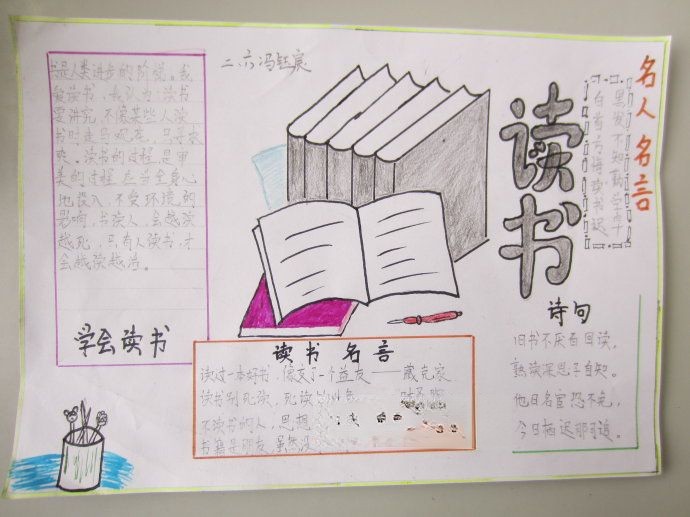 二.六冯钰宸
是人类进步的阶梯。我
爱读书，我认为：读书
要讲究，不像某些人读
书时走马观花，只寻求
快。读书的过程，是审
美的过程，应当全身心
地投入，不受环境的
影响，书读人，会越读
越死，只有人读书，才
会越读越活。
学会读书
读书
名人名言
黑发不知勤学早
白首方悔读书迟
读书名言
读过一本好书，像交了一个益友——臧克家
读书别死读，死读
不读书的人，思想
书籍是朋友，虽然没
诗句
旧书不厌百回读，
熟读深思子自知。
他日名宦恐不免，
今日栖迟那可追。